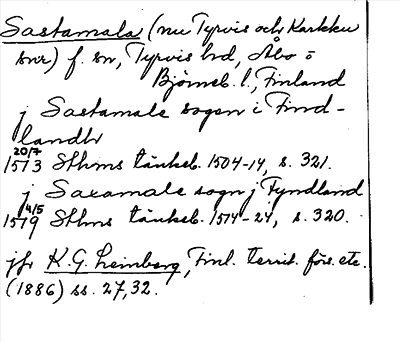 Sastamala (nu Tyrvis och Karkku
snr) f. sn, Tyrvis hd, Åbo o
Björneb. l., Finland
j Sastamale sogen i Find-
landh
20/7
1513 Sthms tänkeb. 1504-14, s. 321.
j Saxamale sogn j Fyndland
4/5
1519 Sthms tänkeb. 1514-24, s. 320.
jfr K.G. Leinberg, Finl. territ. förs. etc.
(1886) ss. 27, 32.